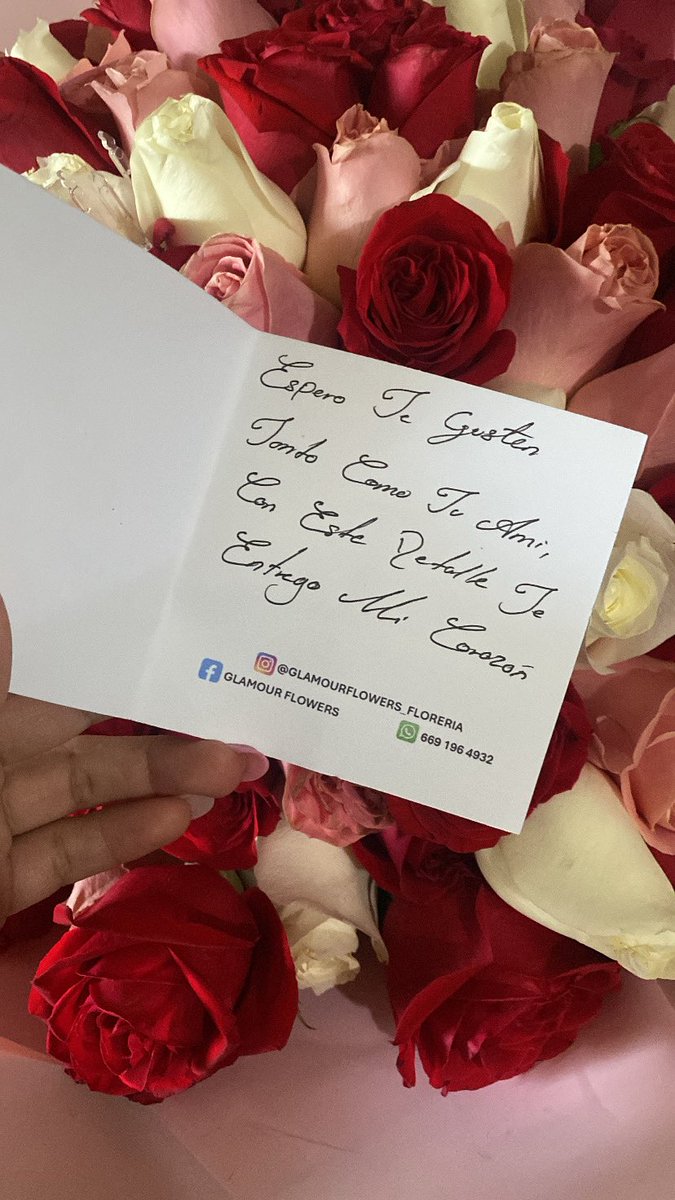 Espero Te Gusten
Tanto Como Tu Ami,
Con Este Detalle Te
Entrego Mi Corazón
@GLAMOURFLOWERS_FLORERIA
GLAMOUR FLOWERS
669 196 4932